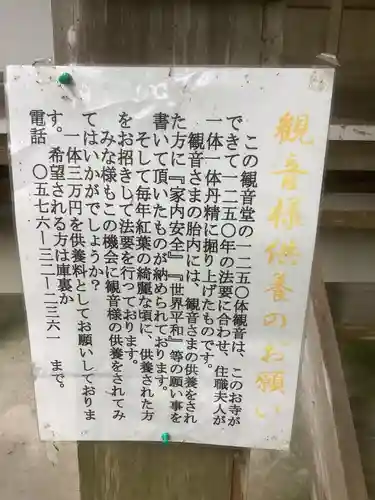 観音様供養のお願い
この観音堂の一二五〇体観音は、このお寺が
できて一二五〇年の法要に合わせ、住職夫人が
一体一体丹精に掘り上げたものです。
観音さまの胎内には、観音さまの供養をされ
た方に『家内安全』『世界平和』等の願い事を
書いて頂いたものが納められております。
そして毎年紅葉の綺麗な頃に、供養された方
をお招きして法要を行っております。
みな様もこの機会に観音様の供養をされてみ
てはいかがでしょうか？
一体三万円を供養料としてお願いしておりま
す。希望される方は庫裏か
電話　〇五七六―三二―二三六一　まで。